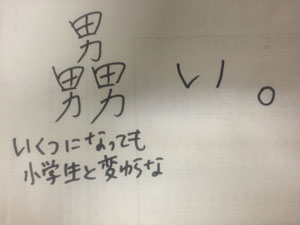 男
男男 い。
いくつになっても
小学生と変わらな